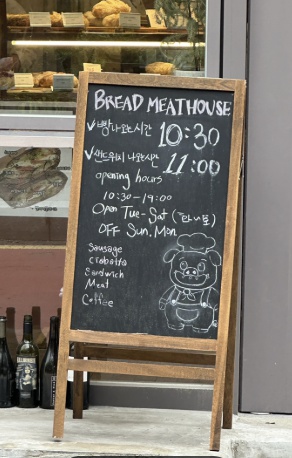 BREAD MEATHOUSE
✓빵나오는시간 10:30
✓샌드위치 나오는시간 11:00
opening hours
10:30-19:00
Open Tue-Sat (화~토)
OFF Sun, Mon
Sausage
Ciabatta
Sandwich
Meat
Coffee